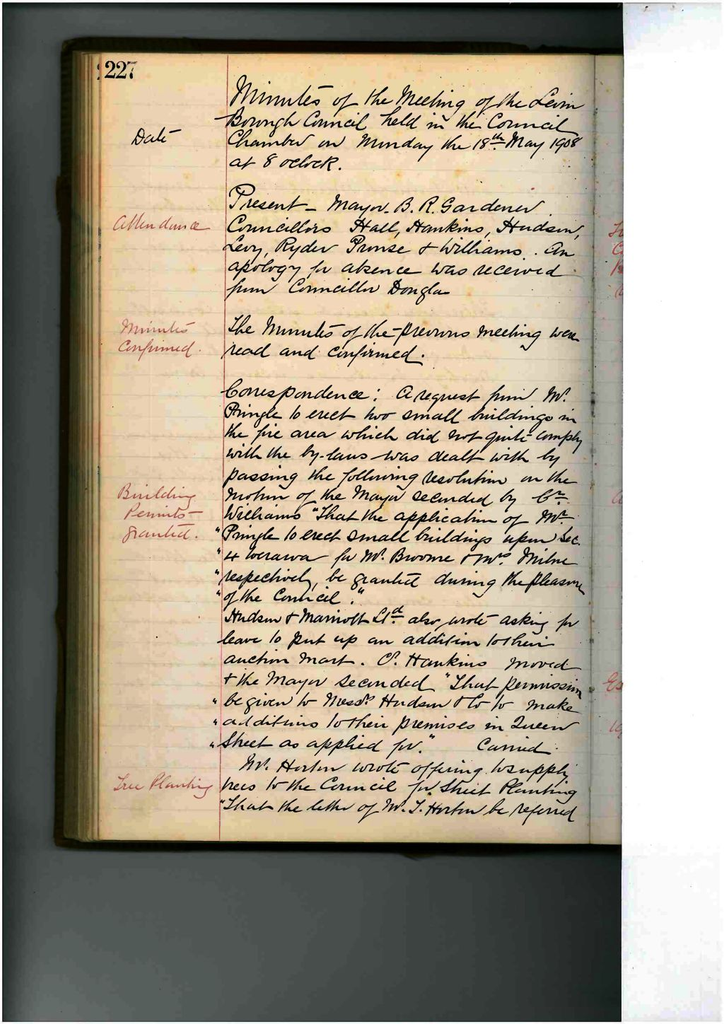 227
Minutes of the Meeting of the Levin
Borough Council held in the Council
Date
Chamber on Monday the 18th May 1908
at 8 oclock.
Present - Mayor B. R. Gardener
Attendance
Councillors Hall, Hankins, Hudson,
Levy, Ryder Prouse & Williams. An
apology for absence was received
from Councillor Douglas
Minutes
Confirmed.
The Minutes of the previous meeting were
read and confirmed.
Correspondence: A request from Mr.
Pringle to erect two small buildings in
the fire area which did not quite comply
with the by-laws was dealt with by
passing the following resolution on the
Building
Permits
granted.
motion of the Mayor seconded by Cr.
Williams "That the application of Mr.
"Pringle to erect small buildings upon Sec
"4 for Mr. Broome & Mrs. Milne
"respectively, be granted during the pleasure
"of the Council."
Hudson & Marriott Ltd. also wrote asking for
leave to put up an addition to their
auction mart. Cr. Hankins moved
& the Mayor seconded "That permission
"be given to Messrs Hudson & Co to make
"additions to their premises in Queen
"Street as applied for." Carried
Mr. Horton wrote offering to supply
Tree Planting
trees to the Council for Street Planting
"That the letter of Mr. J. Horton be referred